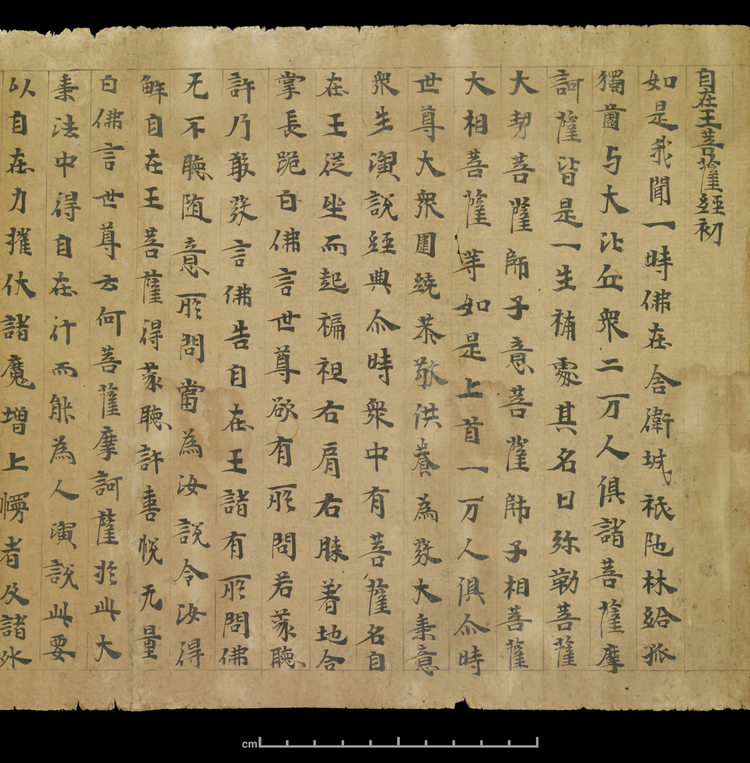 自在王菩薩経初
如是我聞一時佛在舎衛城祇陁林給孤
獨薗与大比丘衆二万人俱諸菩薩摩
訶薩皆是一生補處其名曰弥勒菩薩
大勢菩薩師子意菩薩師子相菩薩
大相菩薩等如是上首一万人俱尒時
世尊大衆圍繞恭敬供養為發大乗意
衆生演說經典尒時衆中有菩薩名自
在王從坐而起褊袒右肩右膝著地合
掌長跪白佛言世尊欲有所問若蒙聴
許乃敢發言佛告自在王諸有所問佛
无不聴随意所問當為汝說令汝得
解自在王菩薩得蒙聴許喜恱无量
白佛言世尊云何菩薩摩訶薩扵此大
乗法中得自在行而能為人演說此要
以自在力摧伏諸魔增上慢者及諸外
cm